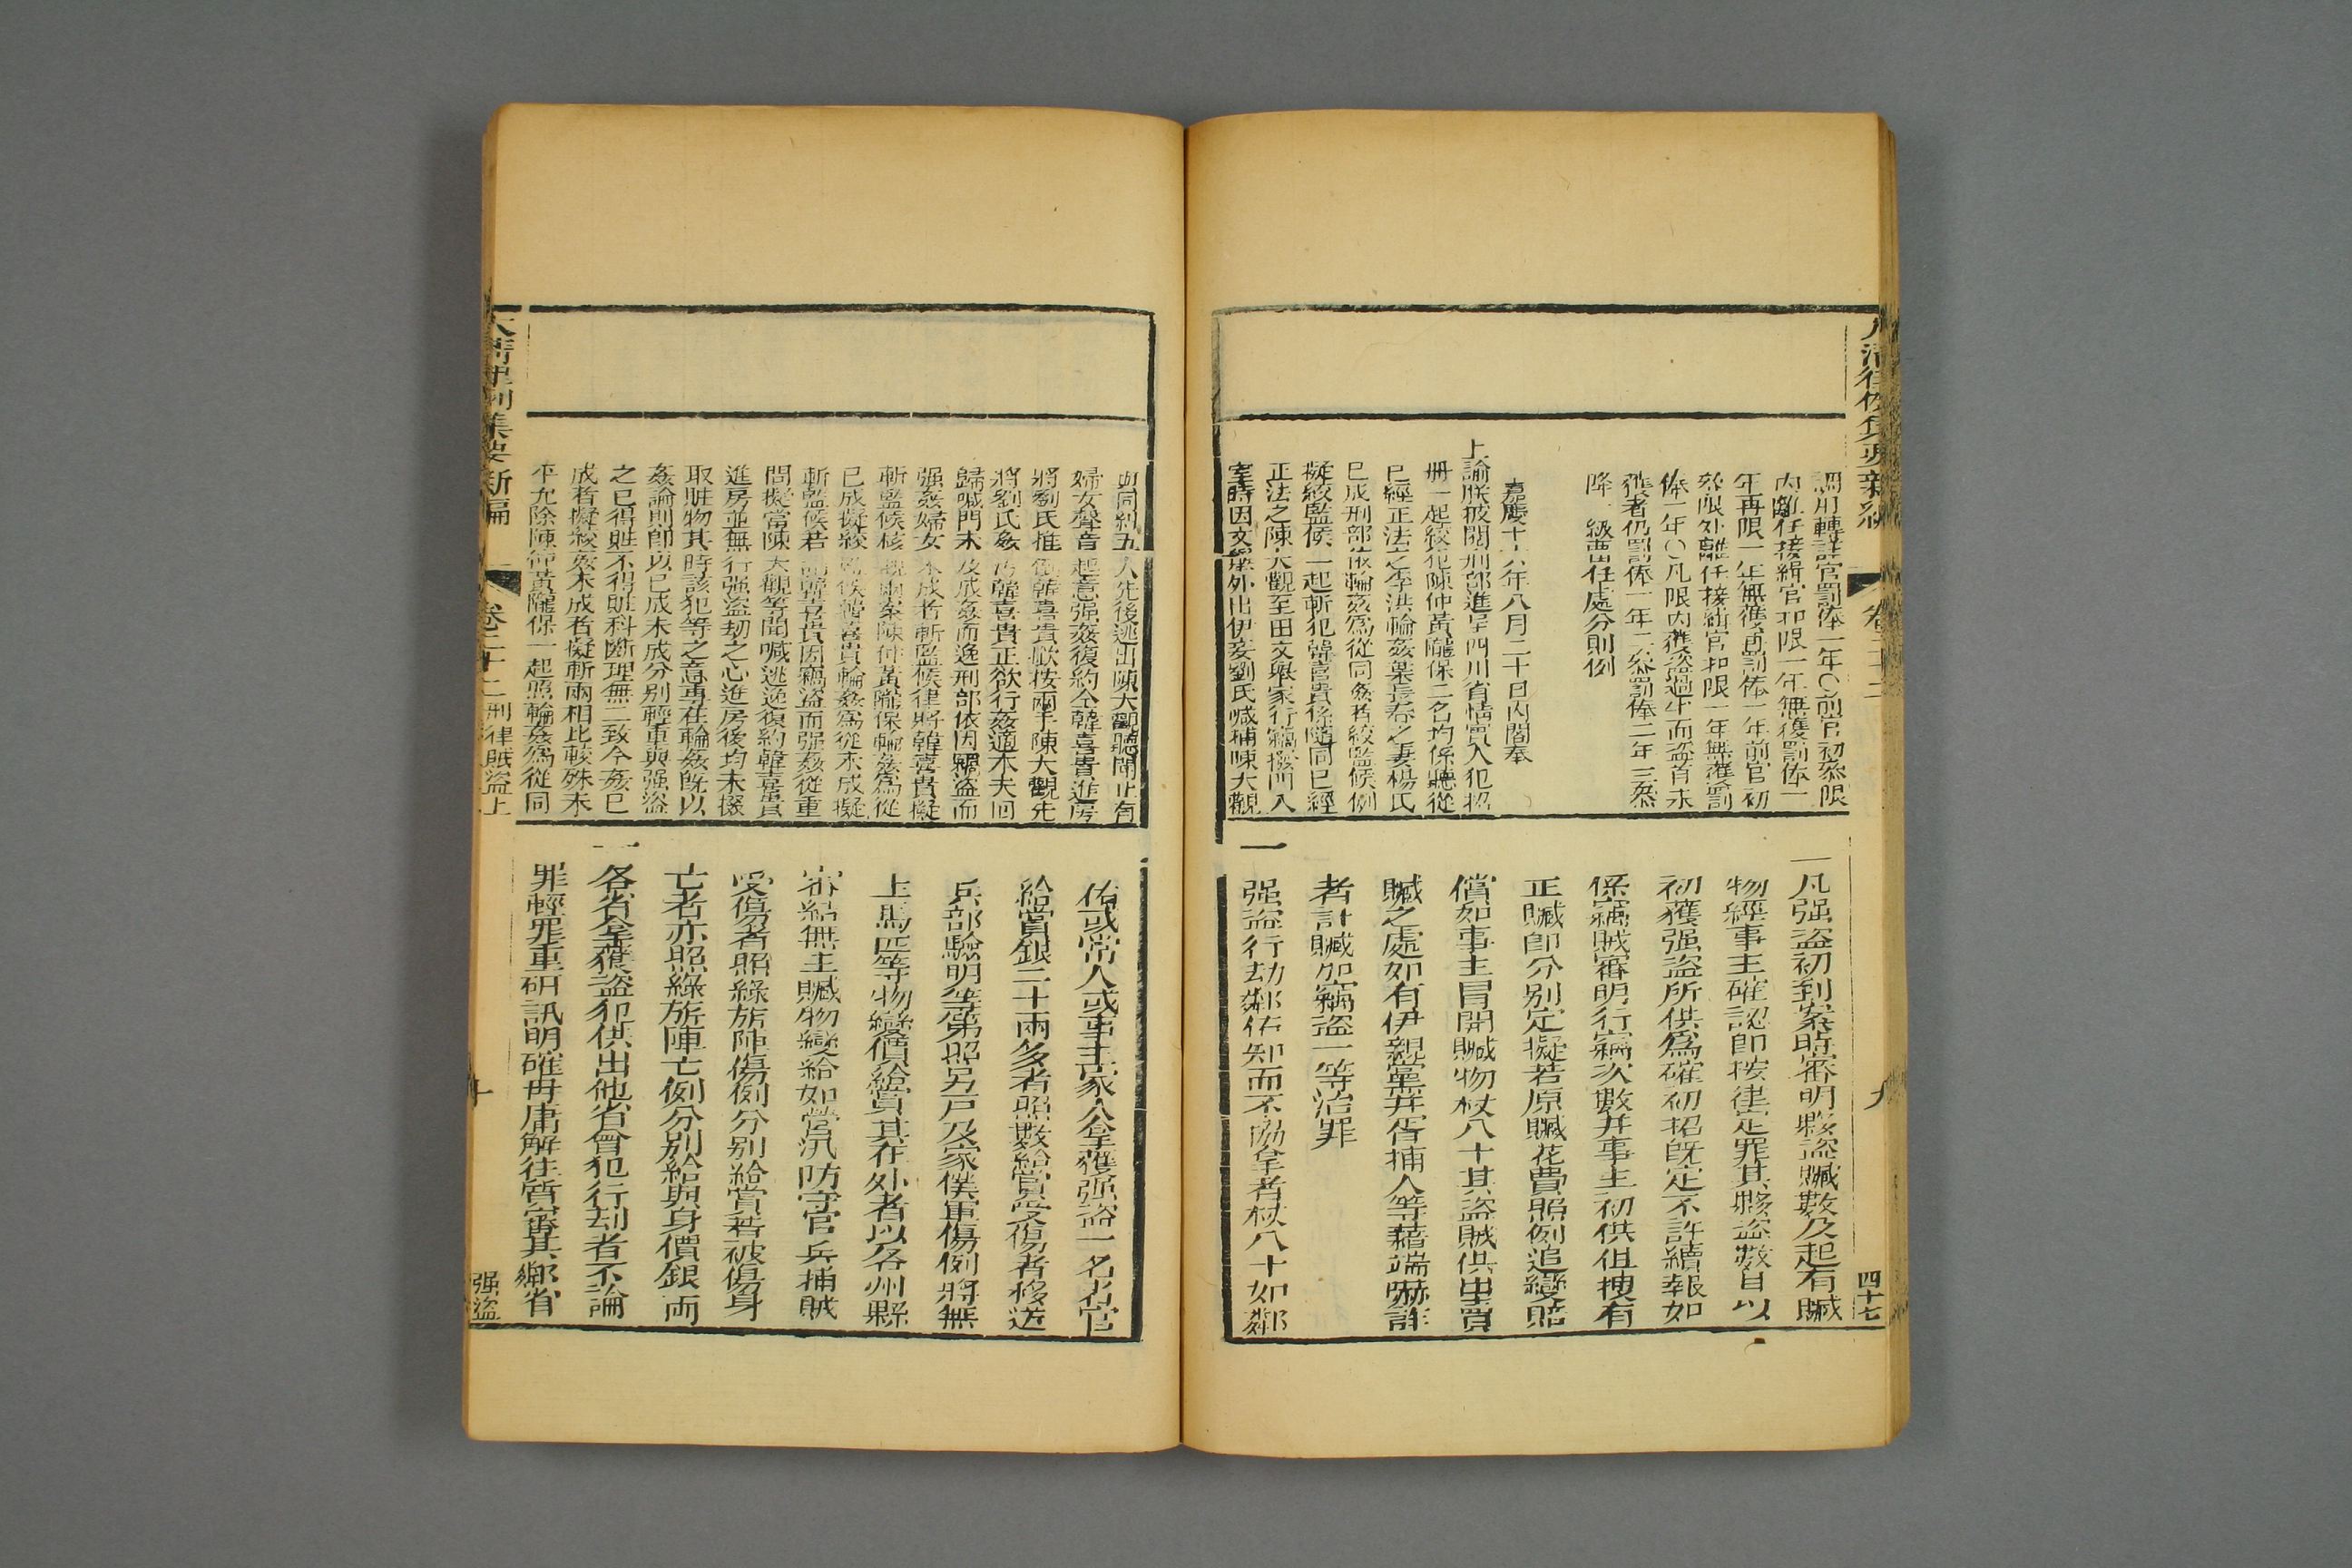 調用轉註官罰俸一年○前官初叅限
內離任接緝官扣限一年無獲罰俸一
年再限一年無獲再罰俸一年前官初
叅限外離任接緝官扣限一年無獲罰
俸一年○凡限內獲盜過半而盜首未
獲者仍罰俸一年二叅罰俸二年三叅
降一級畱任處分則例
嘉慶十六年八月二十日內閣奉
上諭朕披閱刑部進呈四川省情實人犯招
冊一起絞犯陳仲黃隴保二名均係聽從
已經正法之李洪輪姦葉長春之妻楊氏
已成刑部依輪姦爲從同姦者絞監候例
擬絞監候一起斬犯韓喜貴係隨同已經
正法之陳大觀至田文舉家行竊撥門入
室時因文舉外出伊妾劉氏喊捕陳大觀
一凡强盜初到案時審明夥盜贓數及起有贓
物經事主確認即按律定罪其夥盜數目以
初獲强盜所供爲確初招既定不許續報如
係竊賊審明行竊次數并事主初供但搜有
正贓即分别定擬若原贓花費照例追變賠
償如事主冒開贓物杖八十其盜賊供出賣
贓之處如有伊親黨并胥捕人等藉端嚇詐
者計贓照竊盜一等治罪
一强盜行劫鄰佑知而不協拿者杖八十如鄰
大清律例集要新編 卷二十二 九 四十七
與同糾五人先後逃出陳大觀聽聞止有
婦女聲音起意强姦復約仝韓喜貴進房
將劉氏推倒韓喜貴揿按兩手陳大觀先
將劉氏姦污韓喜貴正欲行姦適本夫回
歸喊門未及成姦而逸刑部依因竊盜而
强姦婦女未成者斬監候律將韓喜貴擬
斬監候核閱兩案陳仲黃隴保輪姦爲從
已成擬絞監候韓喜貴輪姦爲從未成擬
斬監候若謂韓喜貴因竊盜而强姦從重
問擬當陳大觀等聞喊逃逸復約韓喜貴
進房並無行强盜劫之心進房後均未掇
取賍物其時該犯等之意專在輪姦旣以
姦論則卽以已成未成分別輕重與强盜
之已得賍不得賍科斷理無二致今姦已
成者擬絞姦未成者擬斬兩相比較殊未
平允除陳仲黃隴保一起照輪姦爲從同
佑或常人或事主家人拿獲强盜一名者官
給賞銀二十兩多者照數給賞受傷者移送
兵部驗明等第照另戶及家僕軍傷例將無
上馬匹等物變價給賞其在外者以各州縣
審結無主贓物變給如營汛防守官兵捕賊
受傷者照綠旂陣傷例分别給賞若被傷身
亡者亦照綠旂陣亡例分别給與身價銀兩
一各省拿獲盜犯供出他省曾犯行刦者不論
罪輕罪重硏訊明確毋庸解往質審其鄰省
大清律例集要新編 卷二十二刑律賊盜上 十 强盜